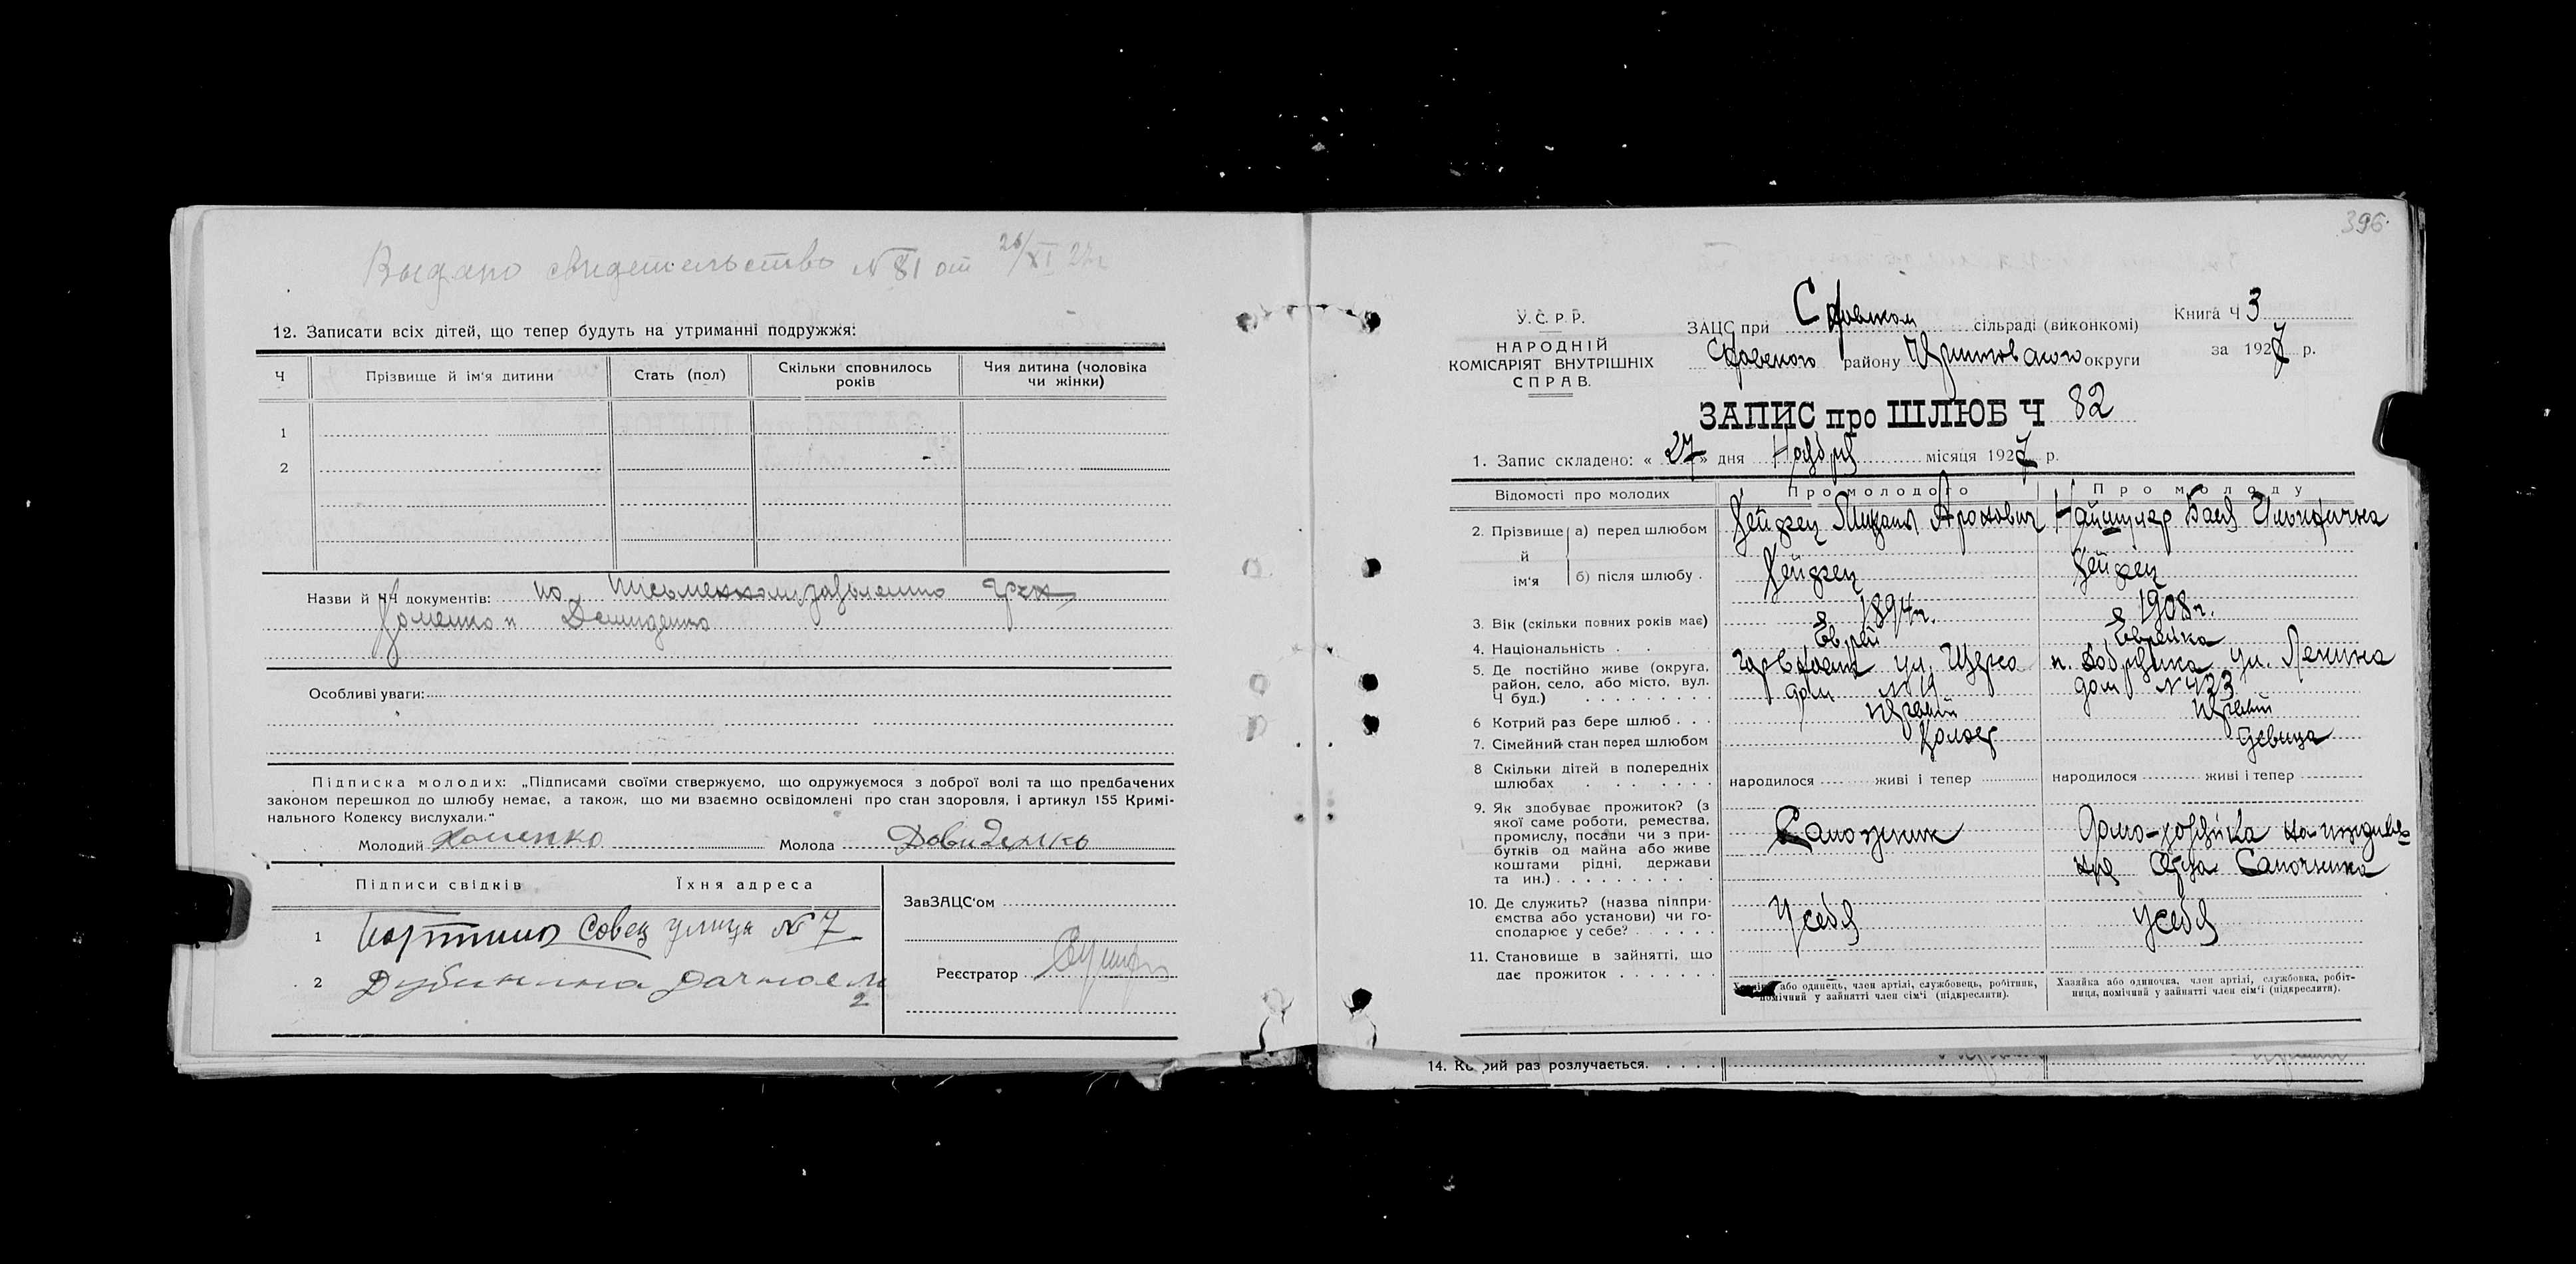 Выдано свидетельство № 81 от 26/XI 27г
12. Записати всіх дітей, що тепер будуть на утриманні подружжя:
Ч
Прізвище й ім'я дитини
Стать (пол)
Скільки сповнилось років
Чия дитина (чоловіка чи жінки)
1
2
Назви й ЧЧ документів: по письменному заявлению
Хоменко и
Особливі уваги:
Підписка молодих: „Підписами своїми ствержуємо, що одружуємося з доброї волі та що предбачених
законом перешкод до шлюбу немає, а також, що ми взаємно освідомлені про стан здоровля, і артикул 155 Кримі-
нального Кодексу вислухали."
Молодий Хоменко Молода Давиденко
Підписи свідків Їхня адреса
1 Совец улица № 7
2 Дубинина Дачное
2
ЗавЗАЦС'ом
Реєстратор
396
У.С.Р.Р.
НАРОДНІЙ
КОМІСАРІЯТ ВНУТРІШНІХ
СПРАВ.
ЗАЦС при сільраді (виконкомі)
району округи
Книга Ч 3
за 1927 р.
ЗАПИС про ШЛЮБ Ч 82
1. Запис складено: « 27 » дня Ноября місяця 1927 р.
Відомості про молодих
Про молодого
Про молоду
2. Прізвище й ім'я а) перед шлюбом
Хейфец Михаил Аронович
Наймулер Бася
б) після шлюбу .
Хейфец
Хейфец
3. Вік (скільки повних років має)
с 1894г.
с 1908г.
4. Національність . .
Еврей
Еврейка
5. Де постійно живе (округа,
район, село, або місто, вул.
Ч буд.) . . . . . . .
ул. Щерса
дом № 19
п. Бобринка ул. Ленина
дом № 433
6 Котрий раз бере шлюб . . .
первый
первый
7. Сімейний стан перед шлюбом
Холост
девица
8 Скільки дітей в попередніх
шлюбах . . . . . .
народилося живі і тепер
народилося живі і тепер
9. Як здобуває прожиток? (з
якої саме роботи, ремества,
промислу, посади чи з при-
бутків од майна або живе
коштами рідні, держави
та ин.) . . . . . . . .
Сапожник
Домо-хозяйка на иждиве
нии Отца Сапожника
10. Де служить? (назва підпри-
ємства або установи) чи го-
сподарює у себе? . . . . .
У себя
У себя
11. Становище в зайнятті, що
дає прожиток . . . . . . .
або одинець, член артілі, службовець, робітник,
помічний у зайнятті член сім'ї (підкреслити).
Хазяйка або одиночка, член артілі, службовка, робіт-
ниця, помічний у зайнятті член сім'ї (підкреслити).
14. Котрий раз розлучається. . . . .